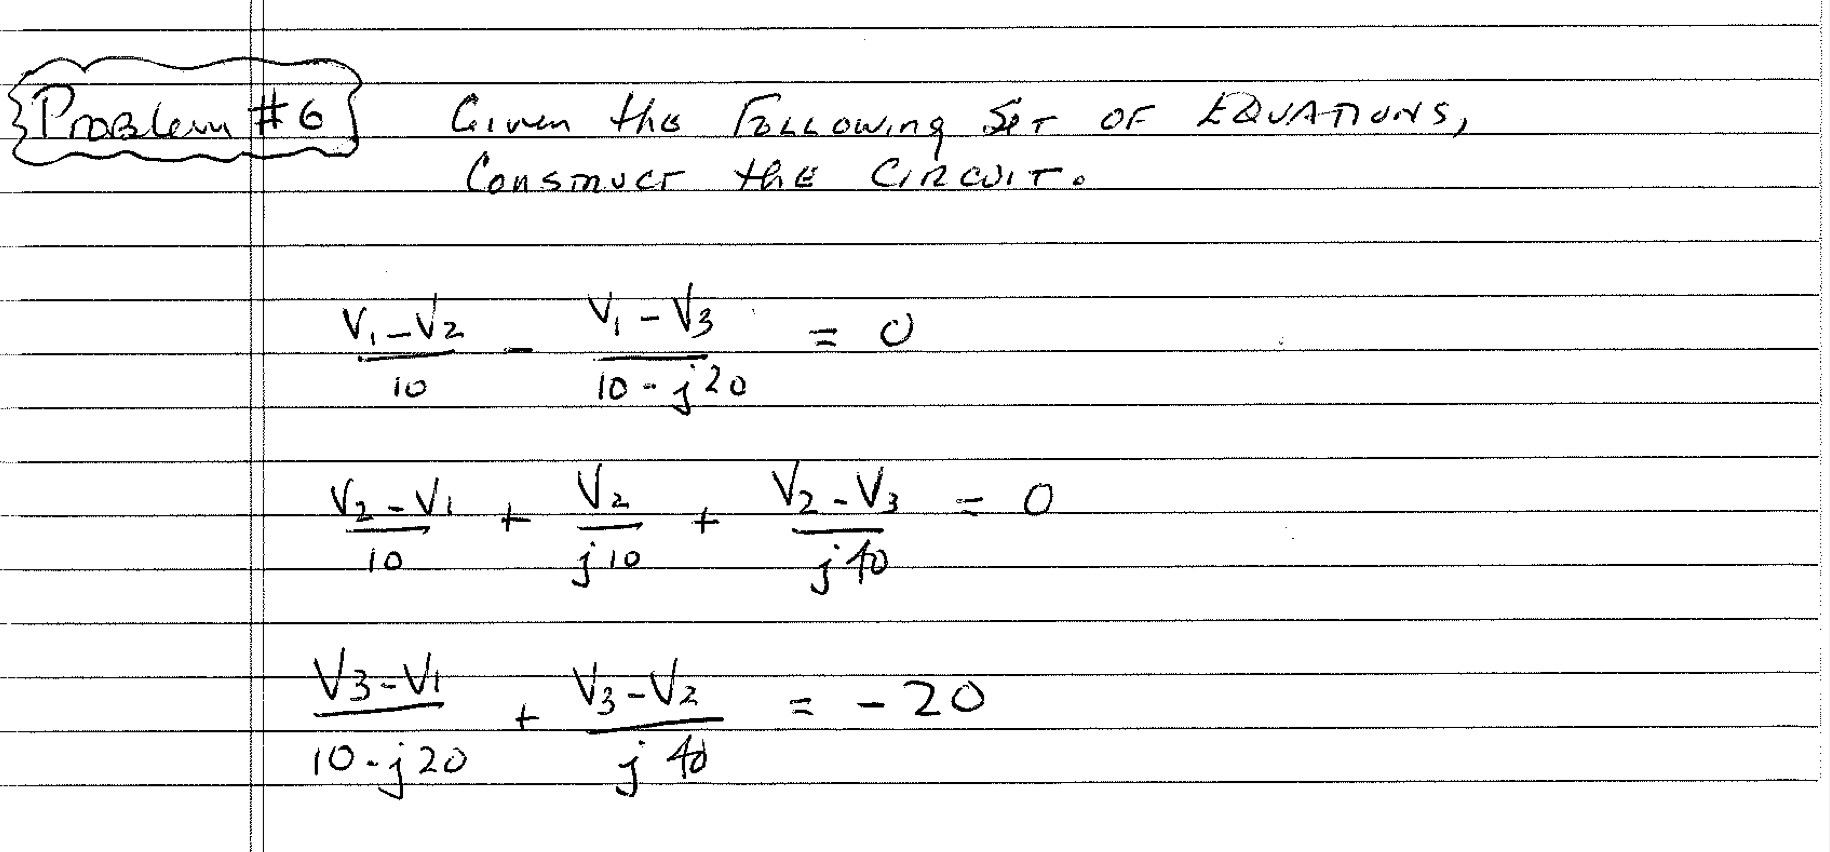 Problem #6 Given the Following Set OF EQUATIONS,
Construct the CIRCUIT.
V1-V2 / 10 - V1-V3 / 10-j20 = 0
V2-V1 / 10 + V2 / j10 + V2-V3 / j40 = 0
V3-V1 / 10-j20 + V3-V2 / j40 = -20